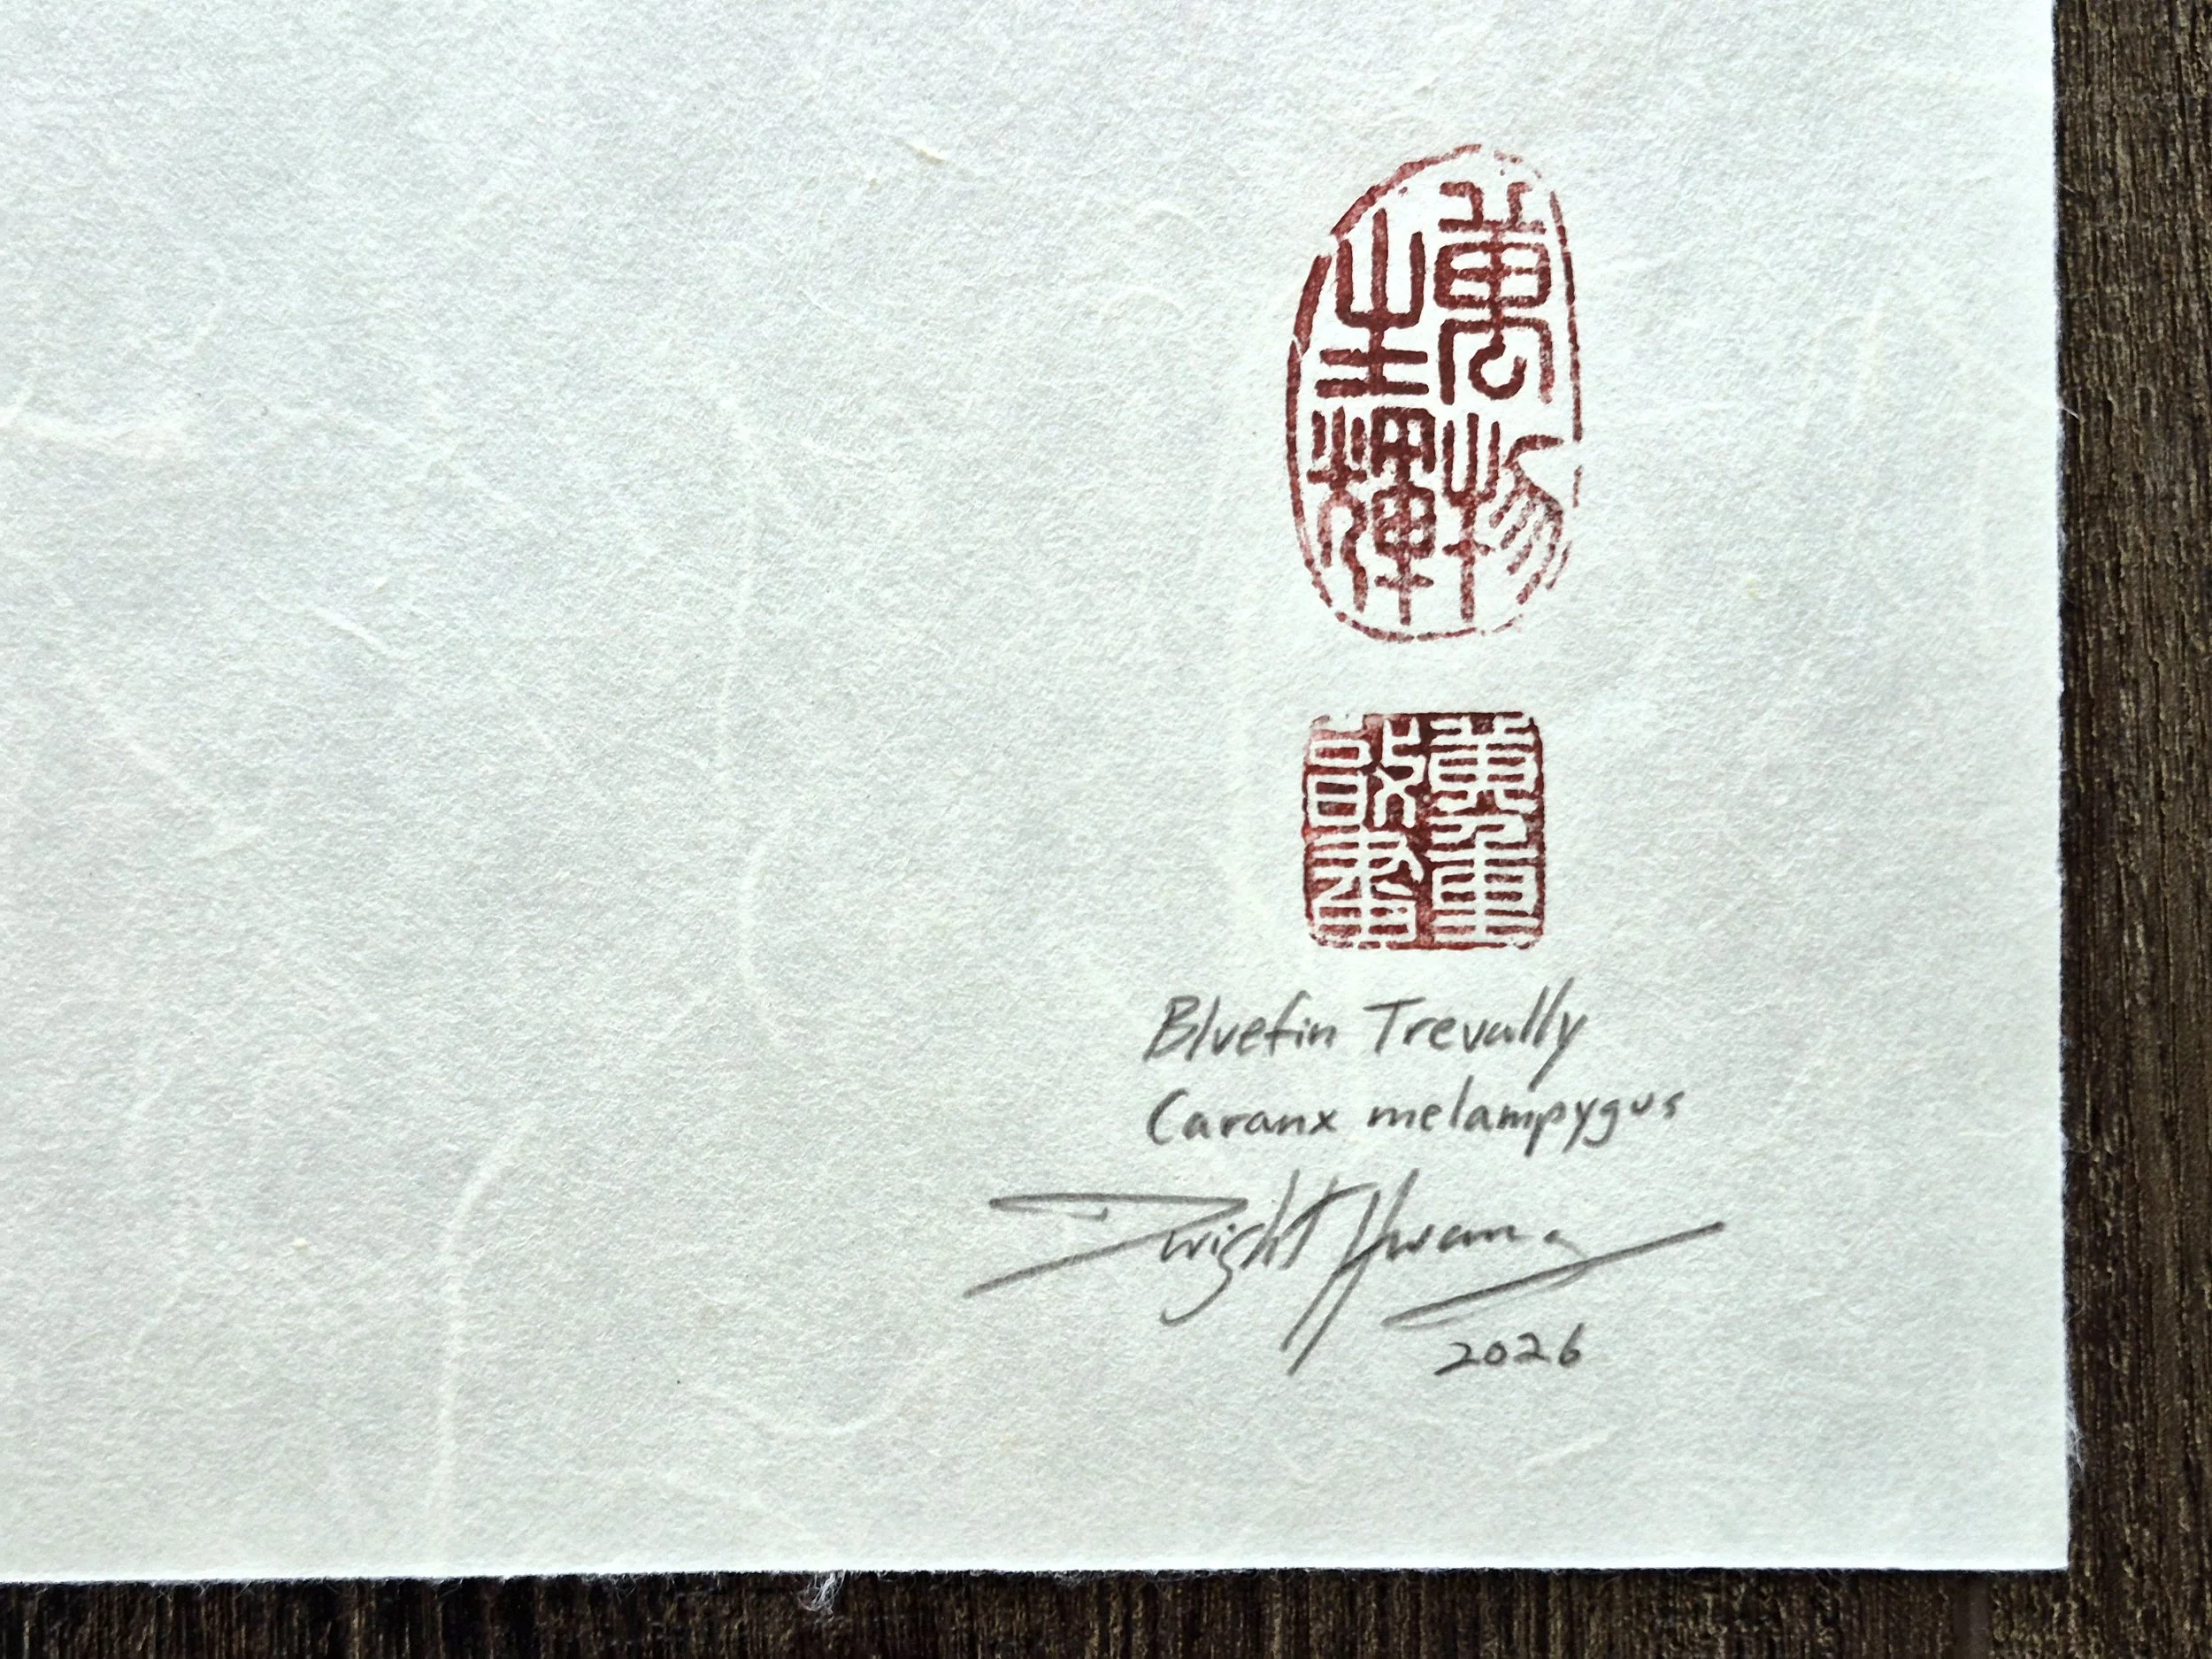 萬物
生輝
Bluefin Trevally
Caranx melampygus
Dwight Hwang
2026